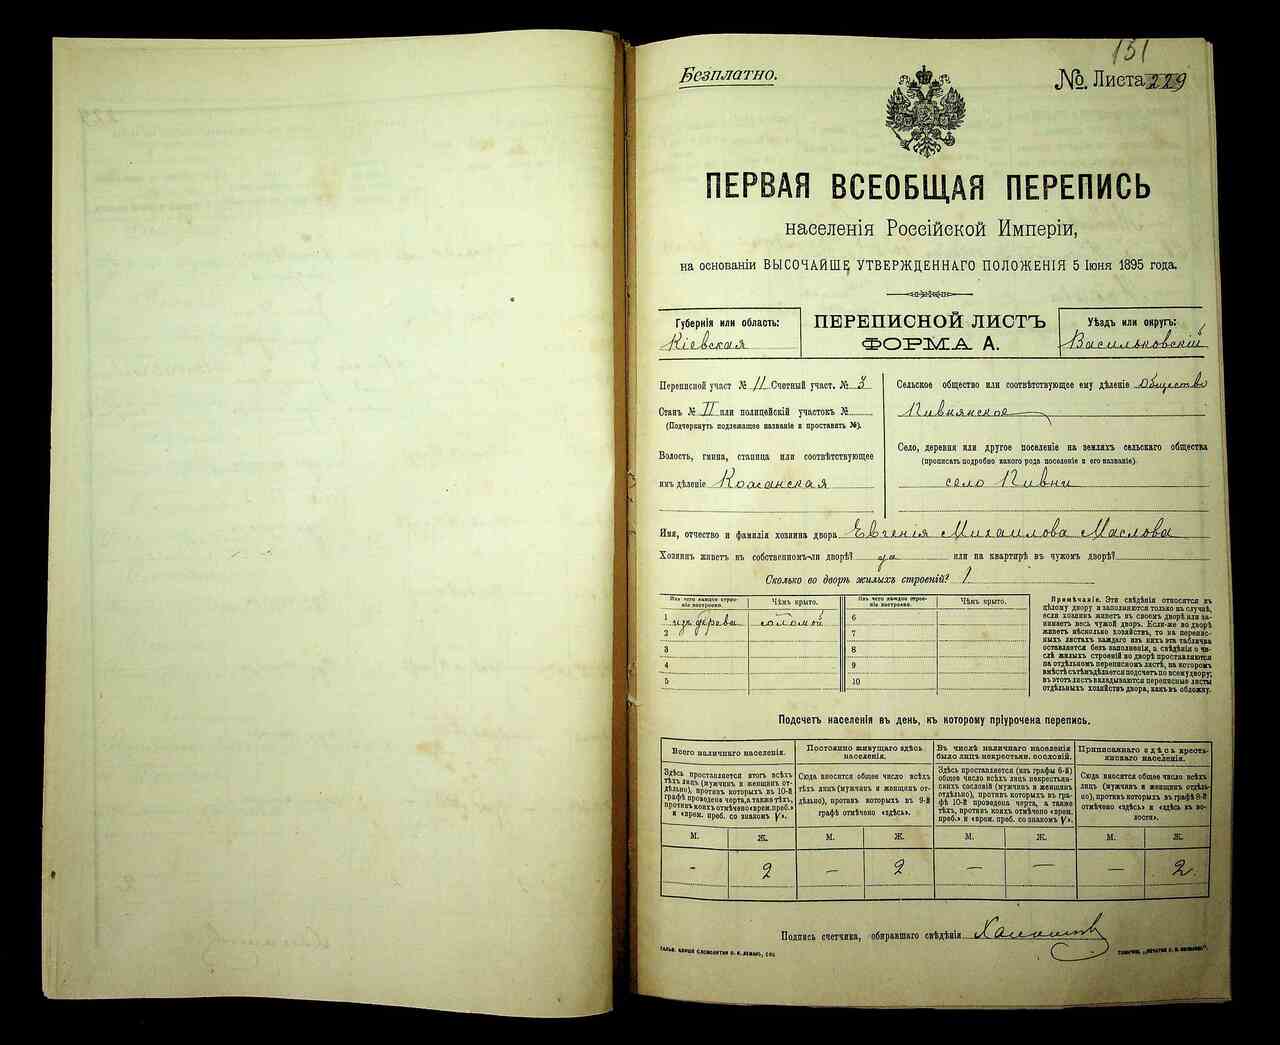 131
Безплатно.
№. Листа 229
ПЕРВАЯ ВСЕОБЩАЯ ПЕРЕПИСЬ
населенія Россійской Имперіи,
на основаніи ВЫСОЧАЙШЕ УТВЕРЖДЕННАГО ПОЛОЖЕНІЯ 5 Іюня 1895 года.
Губернія или область:
Кіевская
ПЕРЕПИСНОЙ ЛИСТЪ
ФОРМА А.
Уѣздъ или округъ:
Васильковскій
Переписной участ. № 11 Счетный участ. № 3
Станъ № II или полицейскій участокъ №
(Подчеркнуть подлежащее названіе и проставить №).
Волость, гмина, станица или соотвѣтствующее
имъ дѣленіе Кожанская
Сельское общество или соотвѣтствующее ему дѣленіе Общество
Пивнянское
Село, деревня или другое поселеніе на земляхъ сельскаго общества
(прописать подробно какого рода поселеніе и его названіе).
село Пивни
Имя, отчество и фамилія хозяина двора Евгенія Михаилова Маслова
Хозяинъ живетъ въ собственномъ-ли дворѣ? да или на квартирѣ въ чужомъ дворѣ?
Сколько во дворѣ жилыхъ строеній? 1
Изъ чего каждое строеніе построено.
Чѣмъ крыто.
Изъ чего каждое строеніе построено.
Чѣмъ крыто.
1 изъ дерева соломой 6
2 7
3 8
4 9
5 10
Примѣчаніе. Эти свѣдѣнія относятся къ
цѣлому двору и заполняются только въ случаѣ,
если хозяинъ живетъ въ своемъ дворѣ или занимаетъ
весь чужой дворъ. Если-же во дворѣ
живетъ нѣсколько хозяйствъ, то на переписныхъ
листахъ каждаго изъ нихъ эта табличка
оставляется безъ заполненія, а свѣдѣнія о числѣ
жилыхъ строеній во дворѣ проставляются
на отдѣльномъ переписномъ листѣ, на которомъ
вмѣстѣ съ тѣмъ дѣлается подсчетъ по всему двору;
въ этотъ листъ вкладываются переписные листы
отдѣльныхъ хозяйствъ двора, какъ въ обложку.
Подсчетъ населенія въ день, къ которому пріурочена перепись.
Всего наличнаго населенія.
Здѣсь проставляется итогъ всѣхъ
тѣхъ лицъ (мужчинъ и женщинъ отдѣльно),
противъ которыхъ въ 10-й
графѣ проведена черта, а также тѣхъ,
противъ коихъ отмѣчено «врем. преб.»
и «врем. преб. со знакомъ V».
Постоянно живущаго здѣсь населенія.
Сюда вносится общее число всѣхъ
тѣхъ лицъ (мужчинъ и женщинъ отдѣльно),
противъ которыхъ въ 9-й
графѣ отмѣчено «здѣсь».
Въ числѣ наличнаго населенія
было лицъ некрестьян. сословій.
Здѣсь проставляется (изъ графы 6-й)
общее число лицъ некрестьянскихъ
сословій (мужчинъ и женщинъ
отдѣльно), противъ которыхъ въ графѣ
10-й проведена черта, а также
тѣхъ, противъ коихъ отмѣчено «врем.
преб.» и «врем. преб. со знакомъ V».
Приписаннаго здѣсь крестьянскаго населенія.
Сюда вносится общее число всѣхъ
лицъ (мужчинъ и женщинъ отдѣльно),
противъ которыхъ въ графѣ 8-й
отмѣчено «здѣсь» и «здѣсь въ волости».
М. Ж. М. Ж. М. Ж. М. Ж.
– 2 – 2 – – – 2.
Подпись счетчика, обиравшаго свѣдѣнія